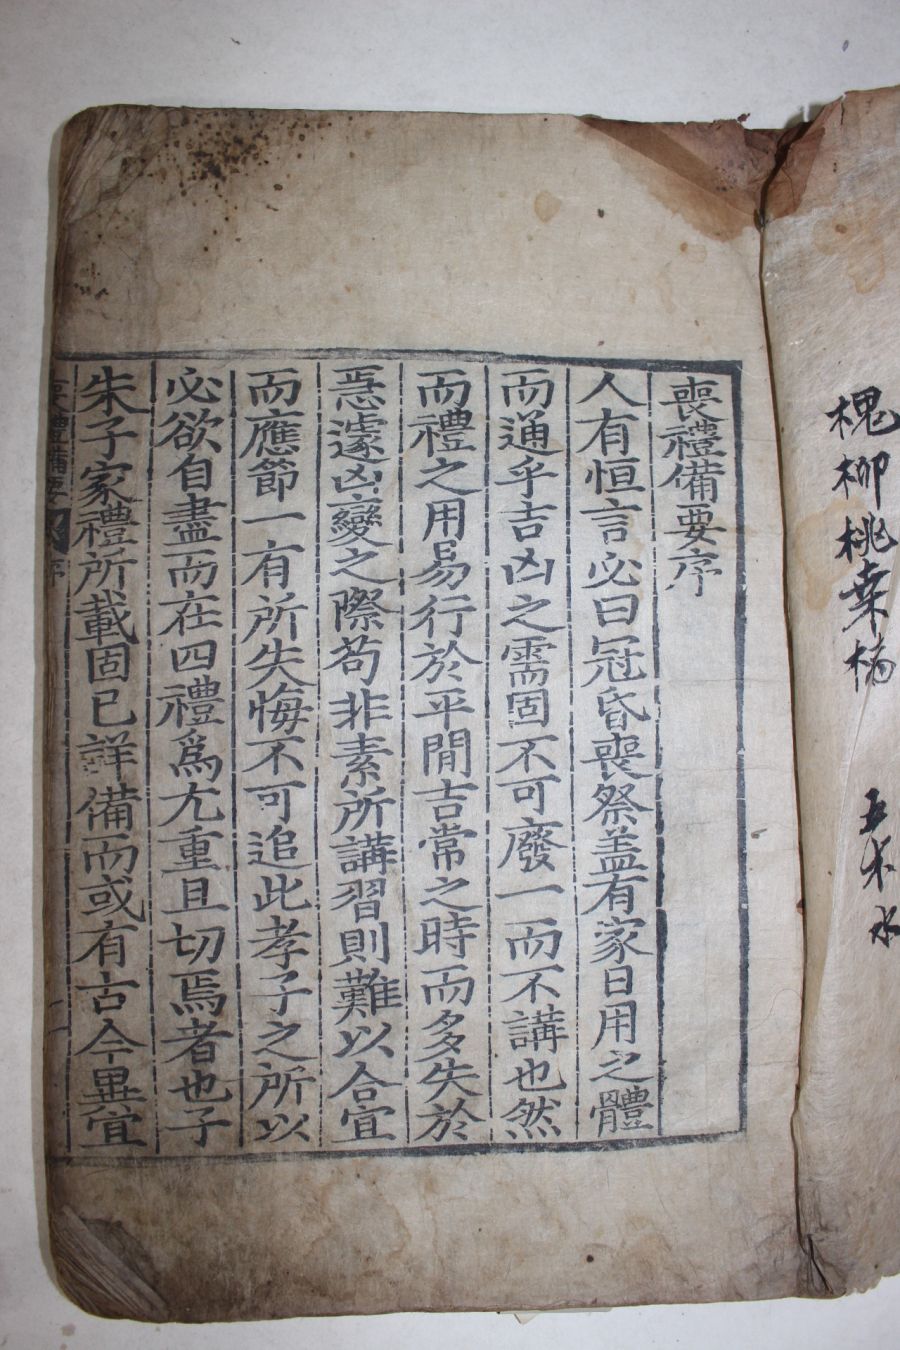 槐柳桃桒楡
五木水
喪禮備要序
人有恒言必曰冠昏喪祭盖有家日用之體
而通乎吉凶之需固不可廢一而不講也然
而禮之用易行於平閒吉常之時而多失於
急遽凶變之際苟非素所講習則難以合宜
而應節一有所失悔不可追此孝子之所以
必欲自盡而在四禮爲尤重且切焉者也子
朱子家禮所載固已詳備而或有古今異宜
喪禮備要 序 一